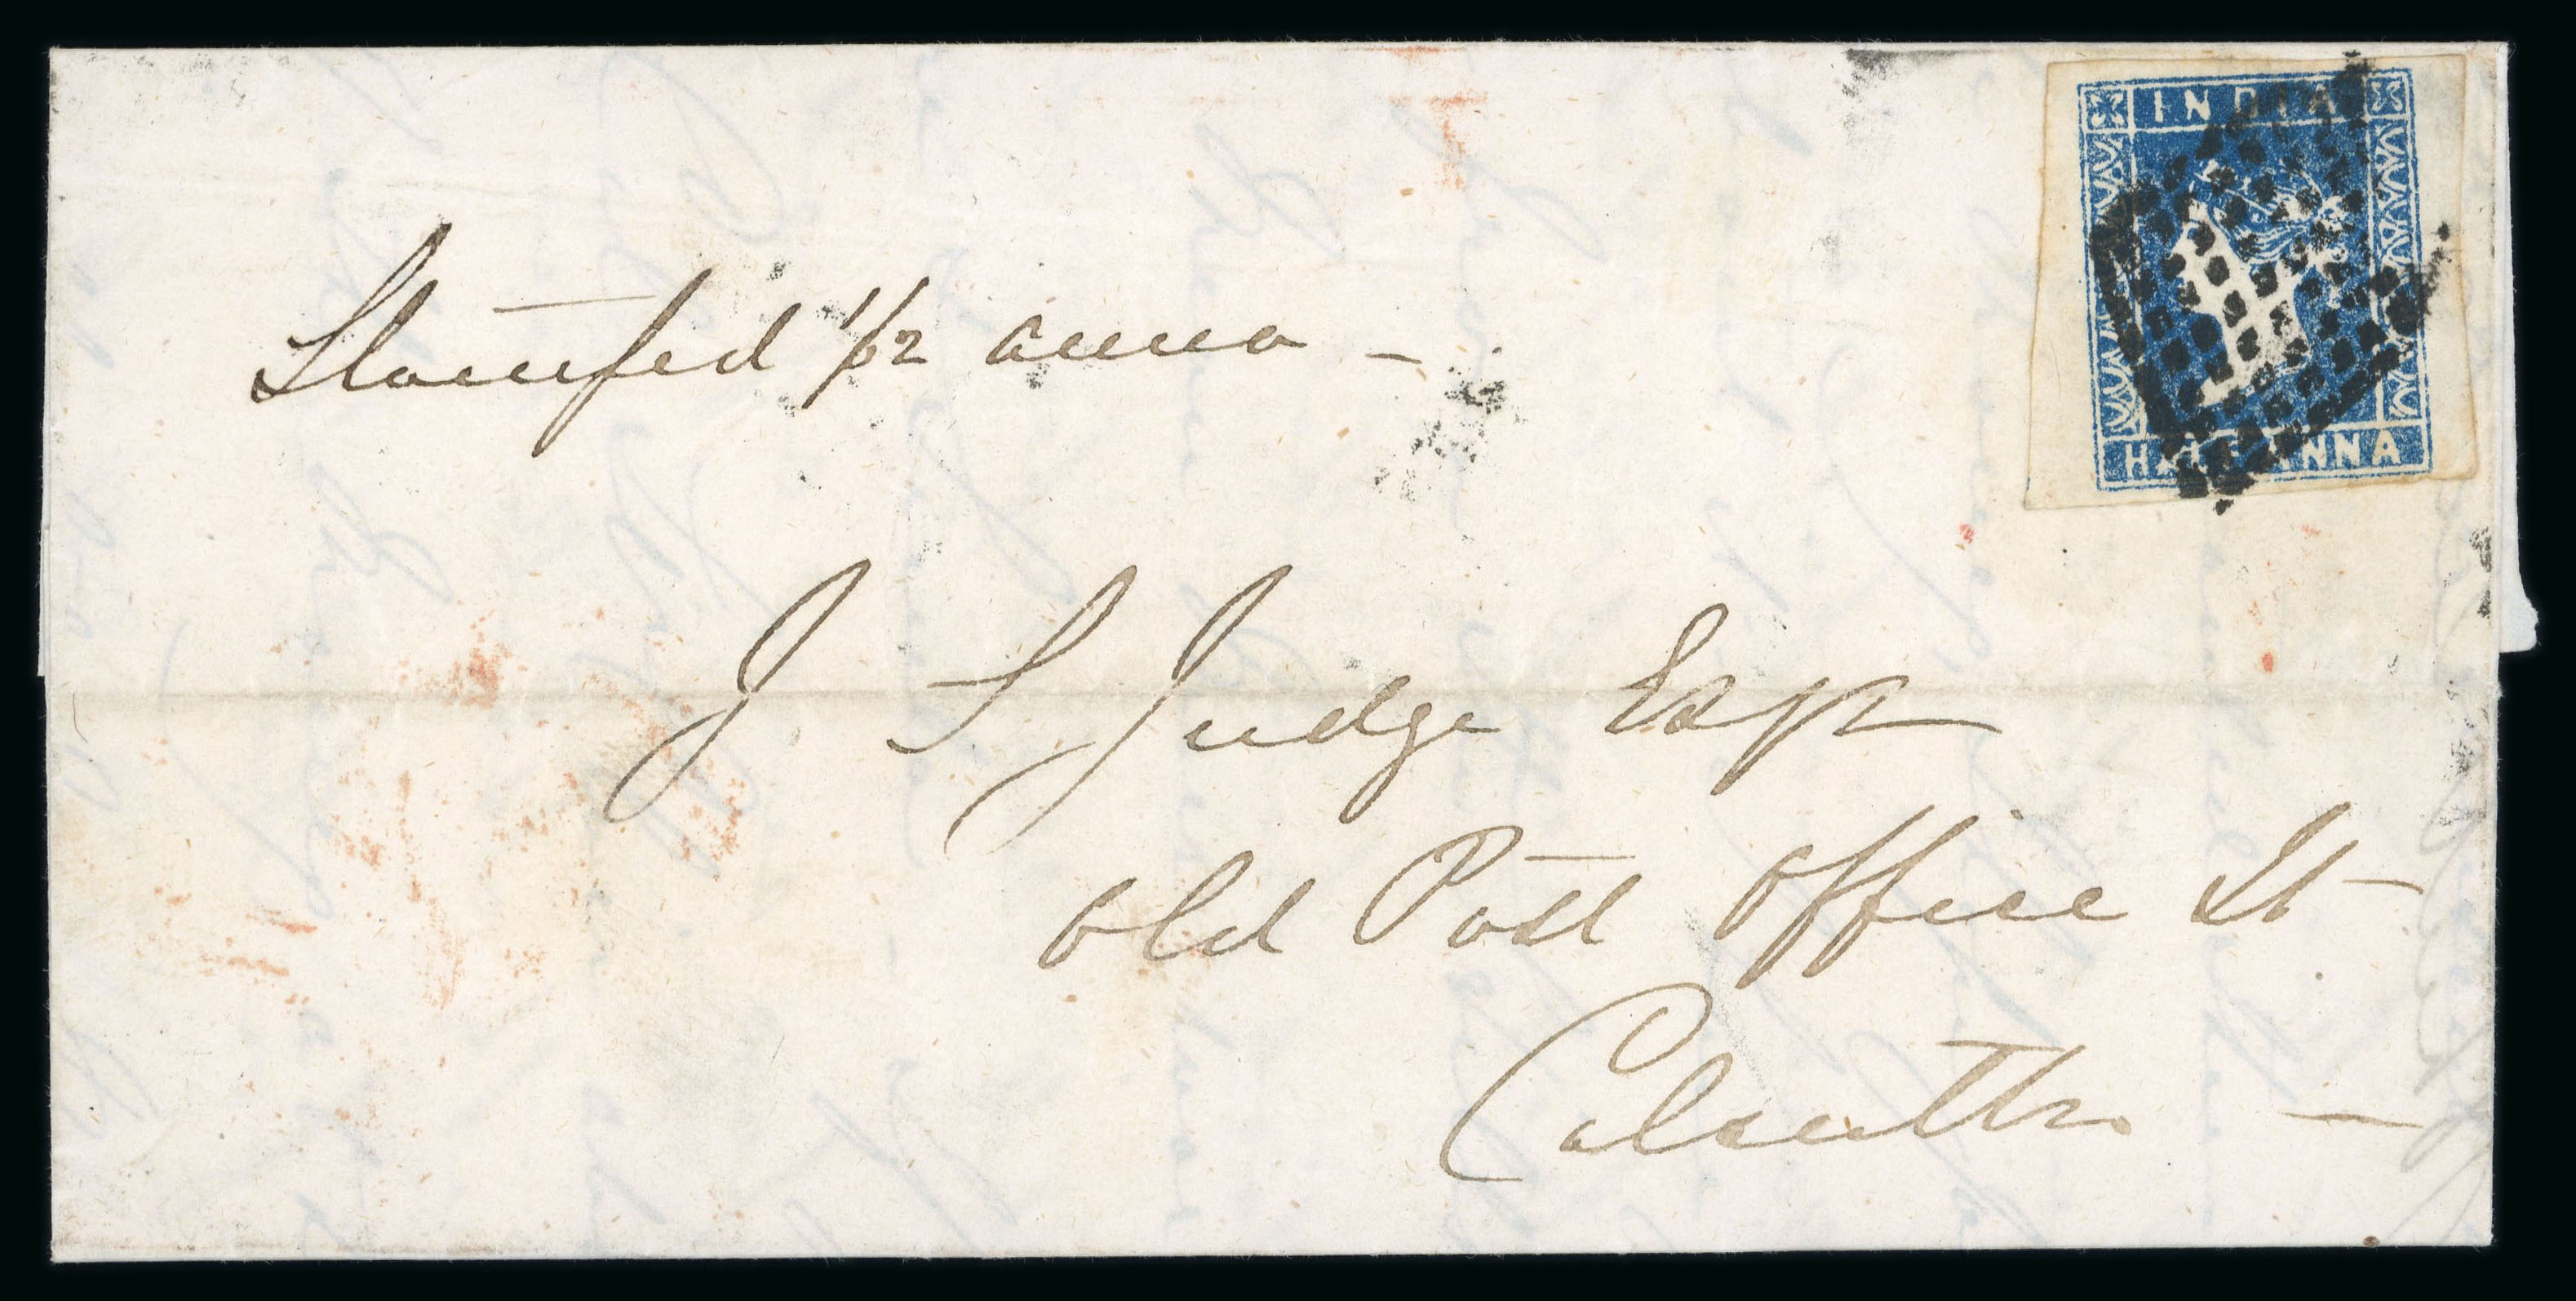 INDIA
HALF ANNA
Stamped 1/2 anna –
J S Judge Esqr
Old Post Office St
Calcutta –